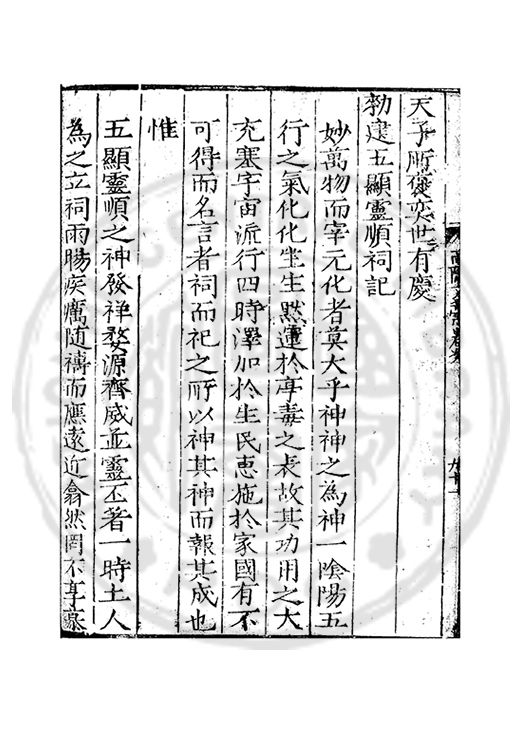 天子所褒奕世有慶
勑建五顯靈順祠記
妙萬物而宰元化者莫大乎神神之為神一隂陽五
行之氣化化生生黙運於亭毒之表故其功用之大
充塞宇宙流行四時澤加於生民恵施於家國有不
可得而名言者祠而祀之所以神其神而報其成也
惟
五顯靈順之神發祥婺源齊威並靈丕著一時士人
為之立祠雨暘疾癘随禱而應遠近翕然罔不享